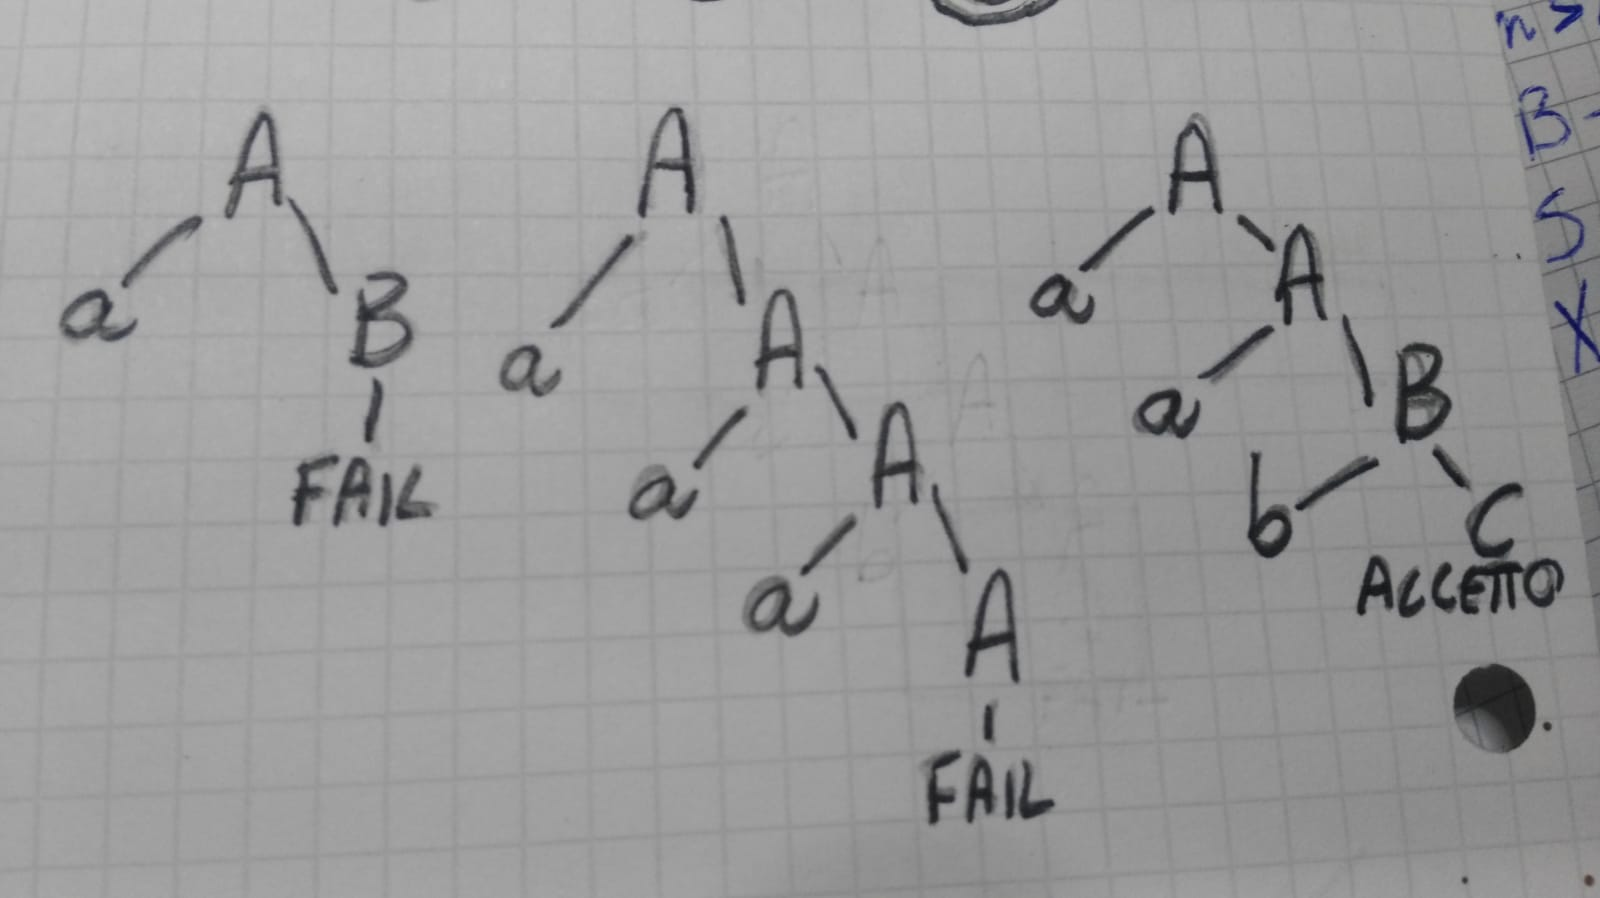 A
a
B
FAIL
A
a
A
a
A
a
A
FAIL
A
a
A
a
B
b
C
ACCETTO
n >
B
S
X